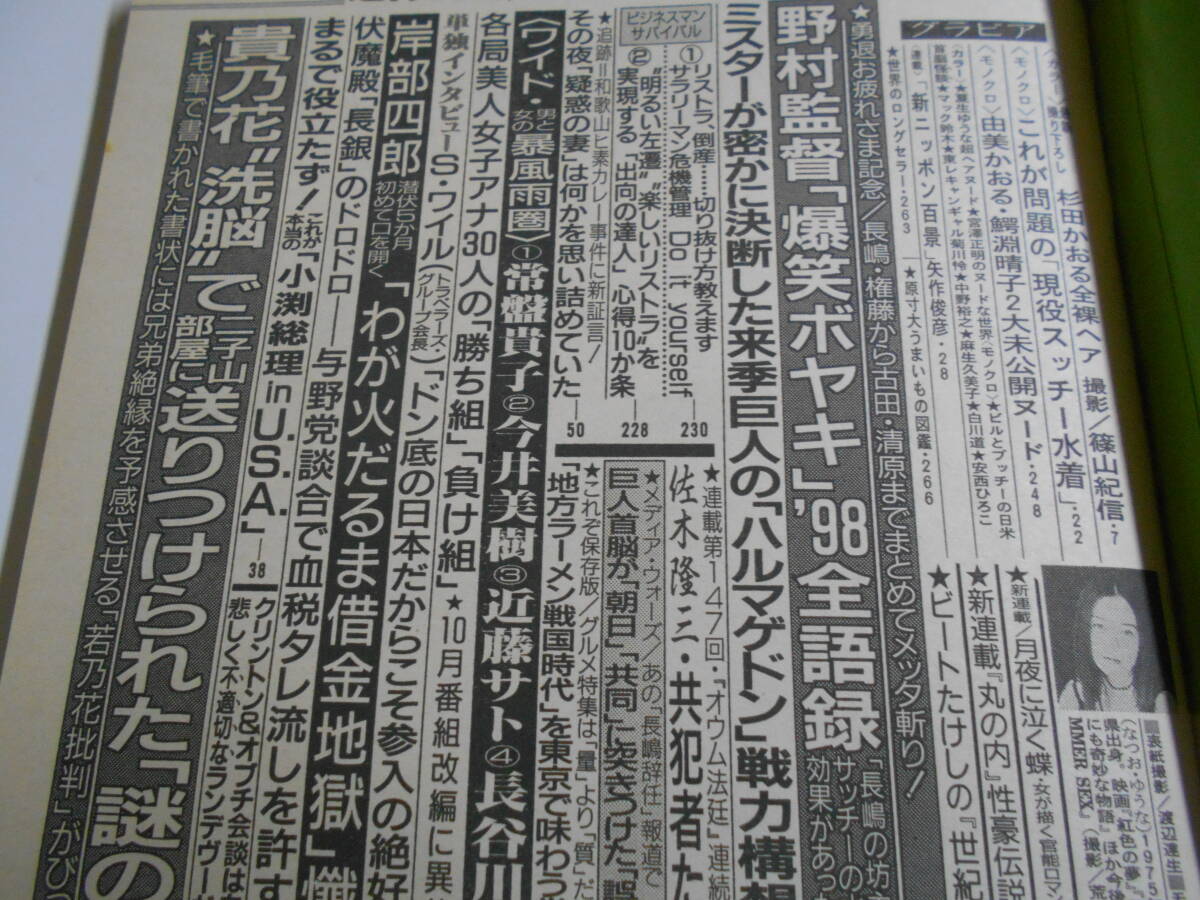 グラビア
杉田かおる全裸ヘア 撮影/篠山紀信・7
〈モノクロ〉これが問題の「現役スッチー水着」・22
〈モノクロ〉由美かおる・鰐淵晴子2大未公開ヌード・248
〈連載〉「新ニッポン百景」矢作俊彦・28
★世界のロングセラー・263
★原寸大うまいもの図鑑・266
★勇退お疲れさま記念/長嶋・権藤から古田・清原までまとめてメッタ斬り!
野村監督「爆笑ボヤキ」'98全語録
「長嶋の坊
サッチーの
効果があっ
ミスターが密かに決断した来季巨人の「ハルマゲドン」戦力構想
ビジネスマンサバイバル
①リストラ、倒産……切り抜け方教えます
サラリーマン危機管理 Do it yourself
230
②"明るい左遷""楽しいリストラ"を
実現する「出向の達人」心得10か条
228
★追跡=和歌山ヒ素カレー事件に新証言!
その夜「疑惑の妻」は何かを思い詰めていた
50
〈ワイド・男と女の暴風雨圏〉①常盤貴子②今井美樹③近藤サト④長谷川
各局美人女子アナ30人の「勝ち組」「負け組」★10月番組改編に異
単独インタビューS・ワイル(トラベラーズ・グループ会長)「ドン底の日本だからこそ参入の絶好
岸部四郎 潜伏5か月初めて口を開く「わが火だるま借金地獄」懺
伏魔殿「長銀」のドロドロ――与野党談合で血税タレ流しを許す
まるで役立たず!これが本当の「小渕総理 in U.S.A.」
38
クリントン&オブチ会談は
悲しく不適切なランデヴー
貴乃花"洗脳"で二子山部屋に送りつけられた「謎の
★毛筆で書かれた書状には兄弟絶縁を予感させる「若乃花批判」がびっ
★連載第147回・「オウム法廷」連続
佐木隆三・共犯者た
★メディア・ウォーズ/あの「長嶋辞任」報道で
巨人首脳が「朝日」「共同」に突きつけた「誤
★これぞ保存版/グルメ特集は「量」より「質」だ
「地方ラーメン戦国時代」を東京で味わう
★新連載/月夜に泣く蝶 女が描く官能ロマン
★新連載『丸の内』性豪伝説
★ビートたけしの「世紀
■表紙撮影/渡辺達生■
(なつお・ゆうな)1975
県出身。映画『紅色の夢』、
にも奇妙な物語』ほか今後
MMER SEX』(撮影/荒